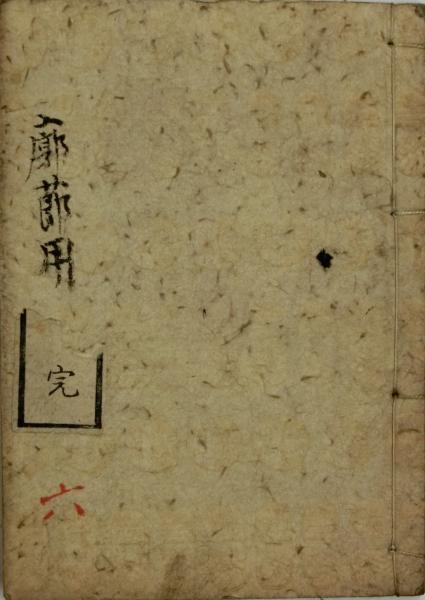 廓節用
完
六